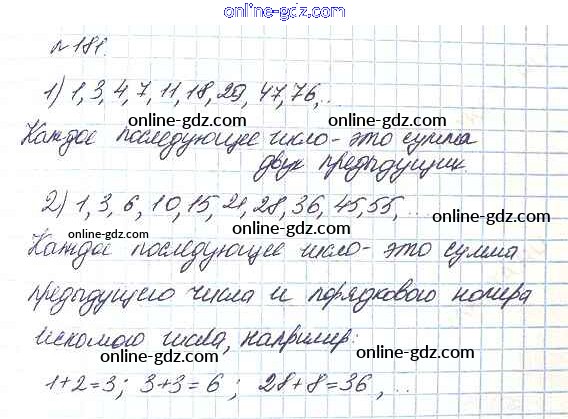 online-gdz.com
№ 181.
online-gdz.com
1) 1, 3, 4, 7, 11, 18, 29, 47, 76, ...
online-gdz.com
Каждое последующее число - это сумма
двух предыдущих.
online-gdz.com
2) 1, 3, 6, 10, 15, 21, 28, 36, 45, 55, ...
online-gdz.com
online-gdz.com
Каждое последующее число - это сумма
online-gdz.com
предыдущего числа и порядкового номера
искомого числа, например:
online-gdz.com
1+2=3; 3+3=6; 28+8=36, ...
online-gdz.com